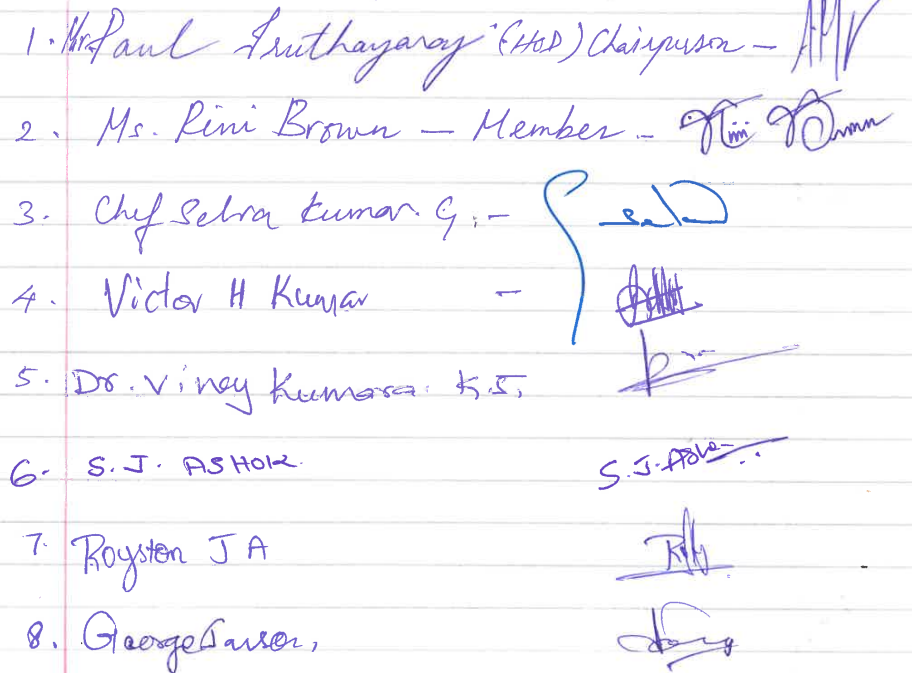 1. Mr. Paul Iruthayaraj (HOD) Chairperson -
2. Ms. Rini Brown - Member -
3. Chef Selva Kumar. G. -
4. Victor H Kumar -
5. Dr. Vinay Kumara. K.S,
6. S. J. ASHOK. S.J. Ashok
7. Royston J A
8. George